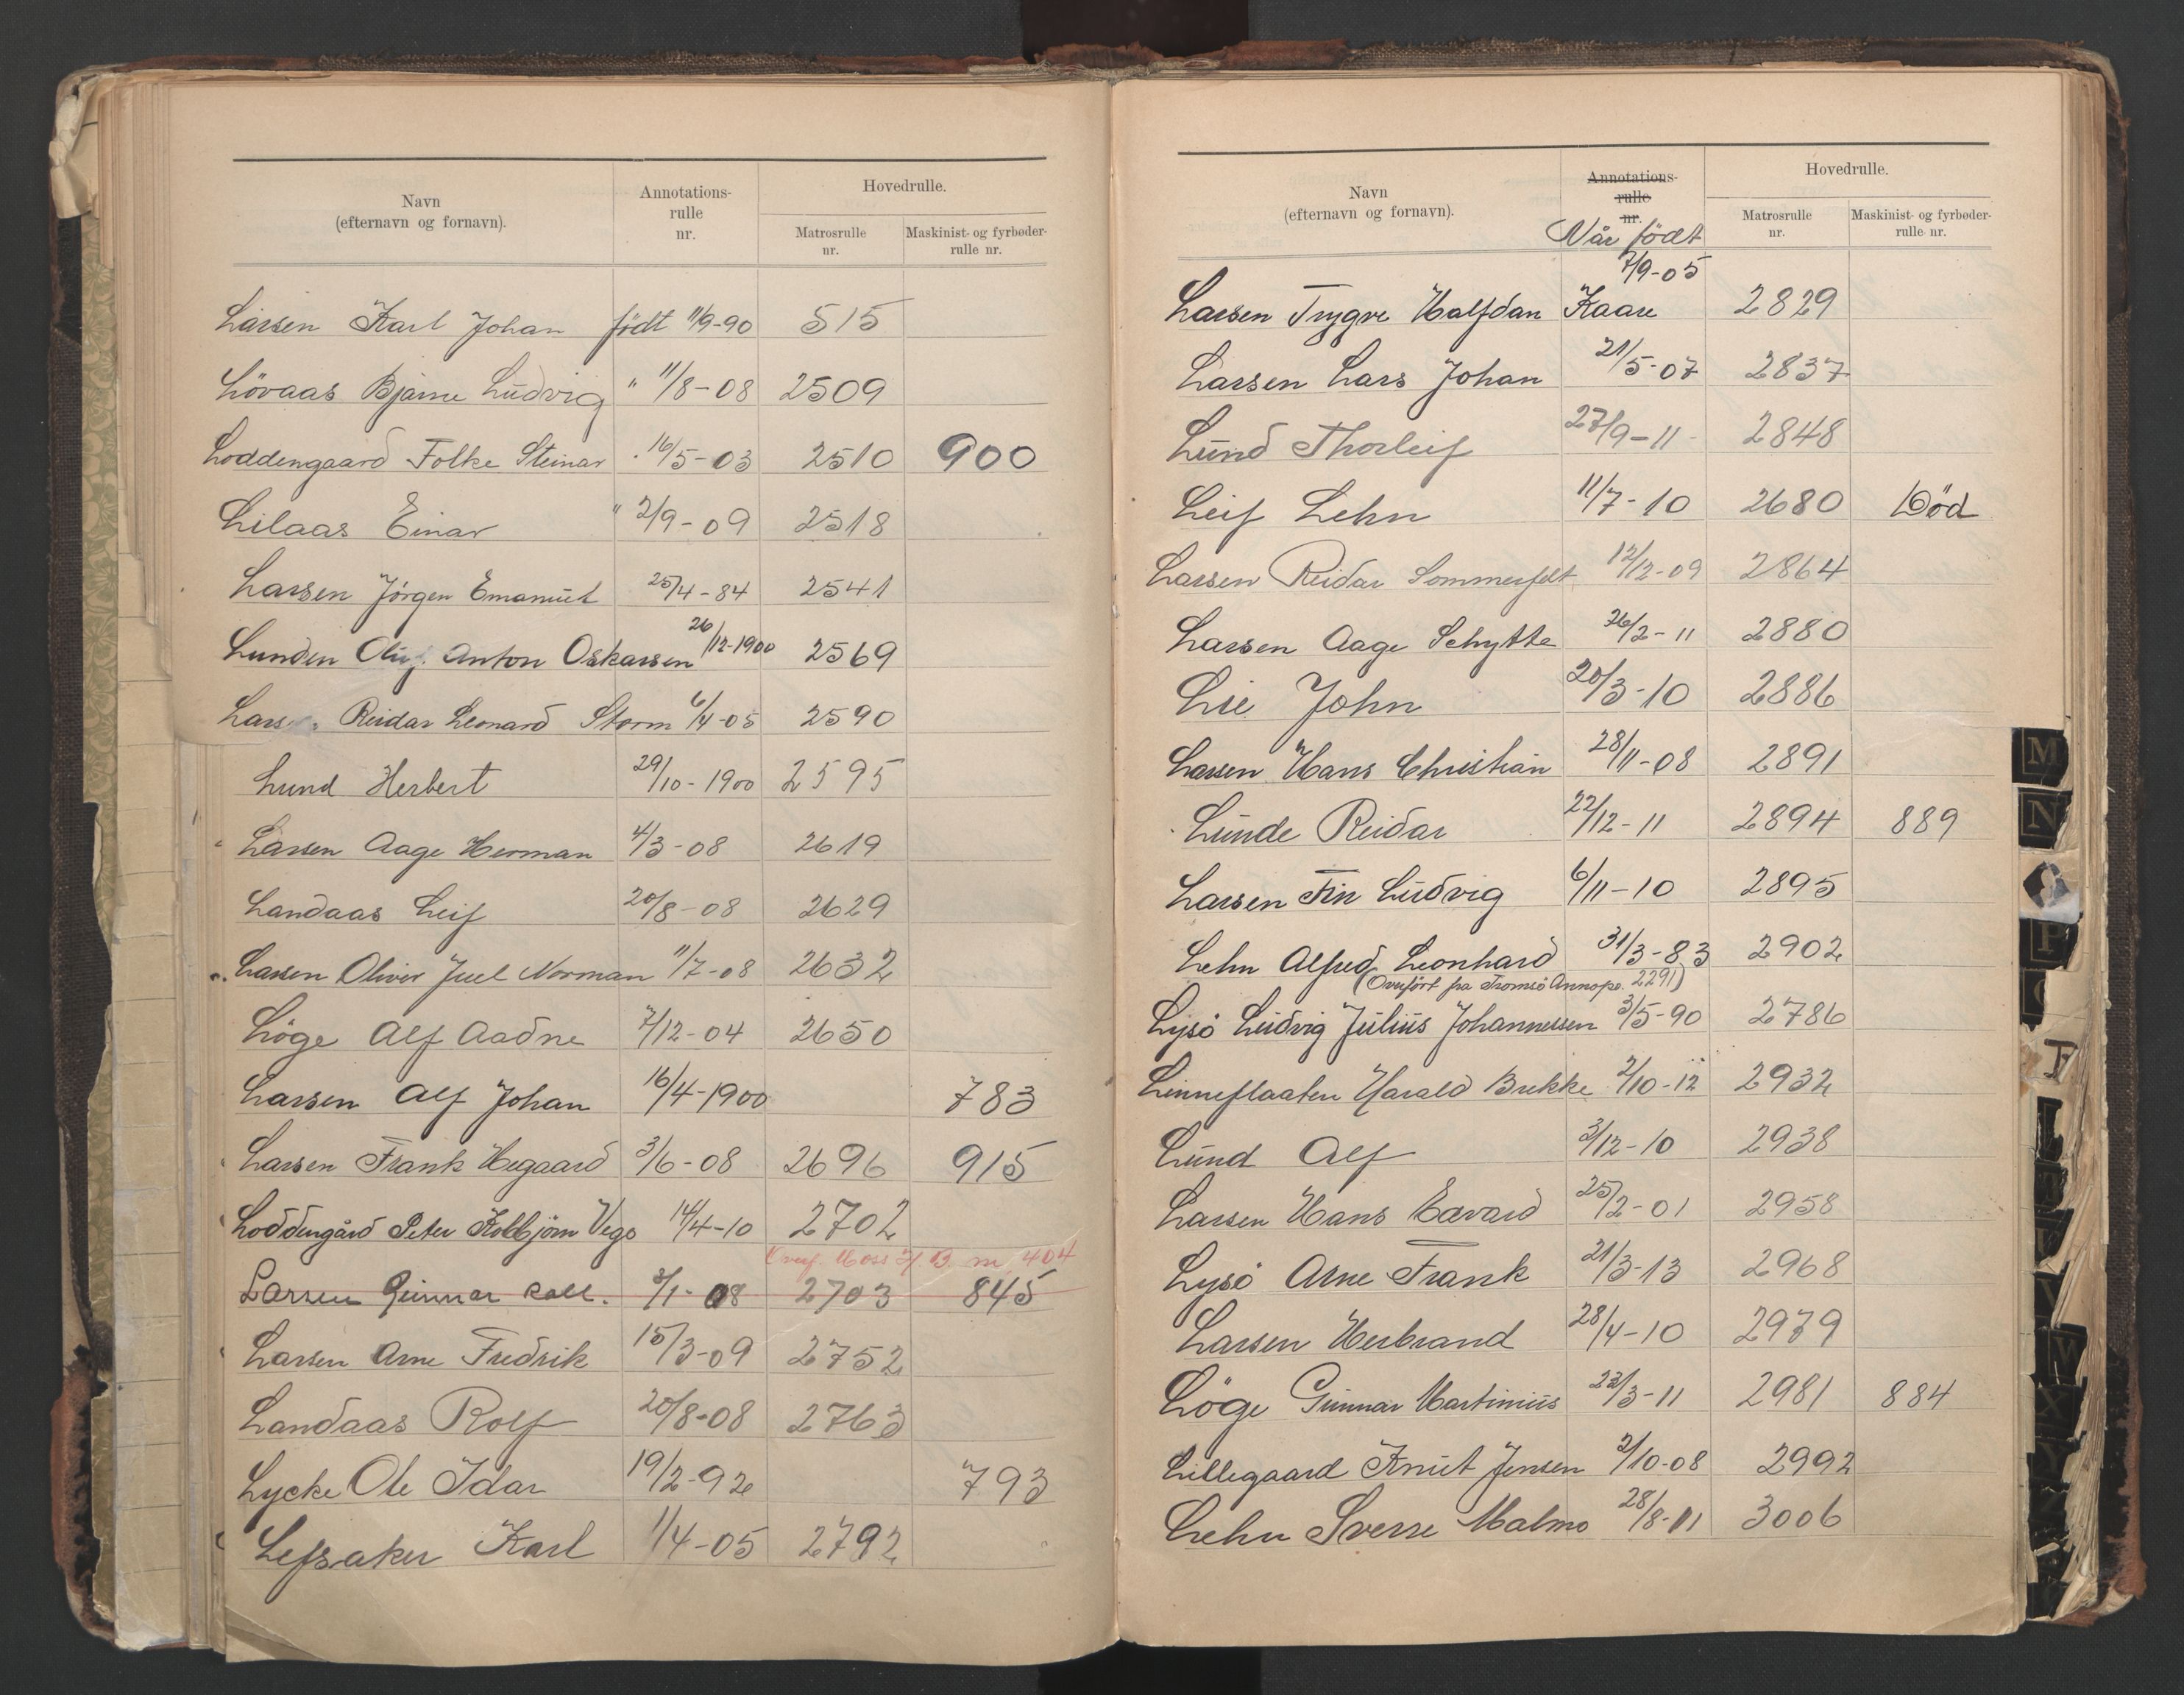 Navn
(efternavn og fornavn).
Annotations-
rulle
nr.
Hovedrulle.
Matrosrulle
nr.
Maskinist- og fyrbøder-
rulle nr.
Larsen Karl Johan født 11/9-90 515
Lövaas Bjarne Ludvig " 11/8-08 2509
Loddengaard Folke Steinar " 16/5-03 2510 900
Lilaas Einar " 2/9-09 2518
Larsen Jörgen Emanuel 25/4-84 2541
Lunden Oluf Anton Oskarsen 26/12-1900 2569
Larsen Reidar Leonard Storm 6/4-05 2590
Lund Herbert 29/10-1900 2595
Larsen Aage Herman 4/3-08 2619
Landaas Leif 20/8-08 2629
Larsen Oliver Juel Norman 11/7-08 2632
Löge Alf Aadne 7/12-04 2650
Larsen Alf Johan 16/4-1900 783
Larsen Frank Hegaard 3/6-08 2696 915
Loddengård Peter Kolbjörn Vego 14/4-10 2702
Overf. Moss 404
Larsen Gunnar 3/1-08 2703 845
Larsen Arne Fredrik 15/3-09 2752
Landaas Rolf 20/8-08 2763
Lycke Ole Idar 19/2-92 793
Lefsaker Karl 1/4-05 2792
Navn
(efternavn og fornavn).
Annotations-
rulle
nr.
Når födt
Hovedrulle.
Matrosrulle
nr.
Maskinist- og fyrbøder-
rulle nr.
7/9-05
Larsen Trygve Halfdan Kaare 2829
Larsen Lars Johan 21/5-07 2837
Lund Thorleif 27/9-11 2848
Leif Lehn 11/7-10 2680 Död
Larsen Reidar Sommerfelt 12/12-09 2864
Larsen Aage Schytte 26/2-11 2880
Lie John 20/3-10 2886
Larsen Hans Christian 28/11-08 2891
Lunde Reidar 22/12-11 2894 889
Larsen Fin Ludvig 6/11-10 2895
Lehn Alfred Leonhard 31/3-83 2902
(Overfört fra Tromsö Annopr. 2291)
Lysö Ludvig Julius Johannessen 3/5-90 2786
Linneflaaten Harald Brekke 2/10-12 2932
Lund Alf 3/12-10 2938
Larsen Hans Edvard 25/2-01 2958
Lysö Arne Frank 21/3-13 2968
Larsen Herbrand 28/4-10 2979
Löge Gunnar Martinius 23/3-11 2981 884
Lillegaard Knut Jensen 2/10-08 2992
Lehn Sverre Malmo 28/8-11 3006
M
N
P